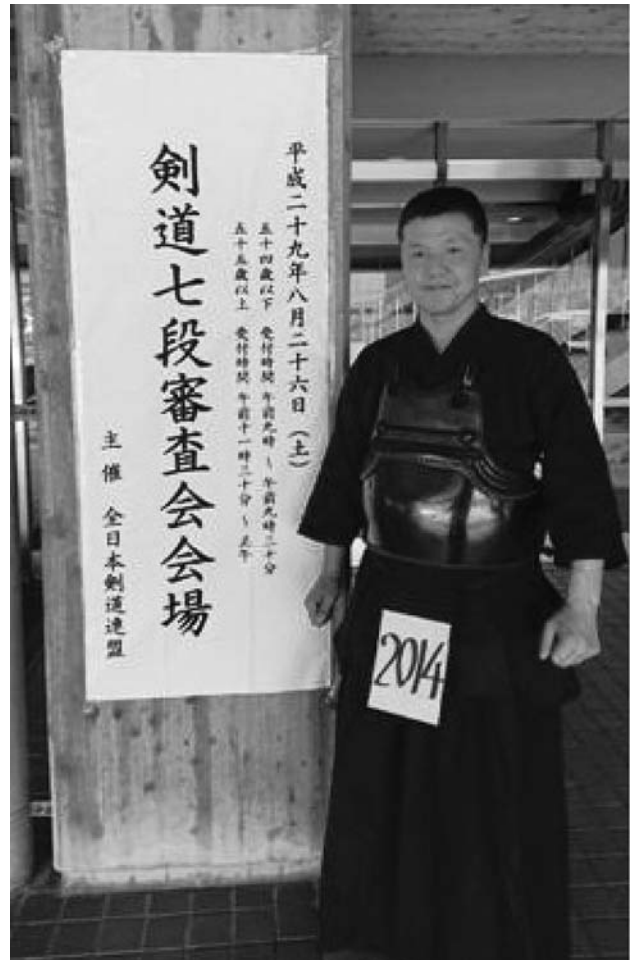 平成二十九年八月二十六日（土）
五十四歳以下　受付時間　午前九時～午前九時三十分
五十五歳以上　受付時間　午前十一時三十分～正午
剣道七段審査会会場
主催　全日本剣道連盟
2014